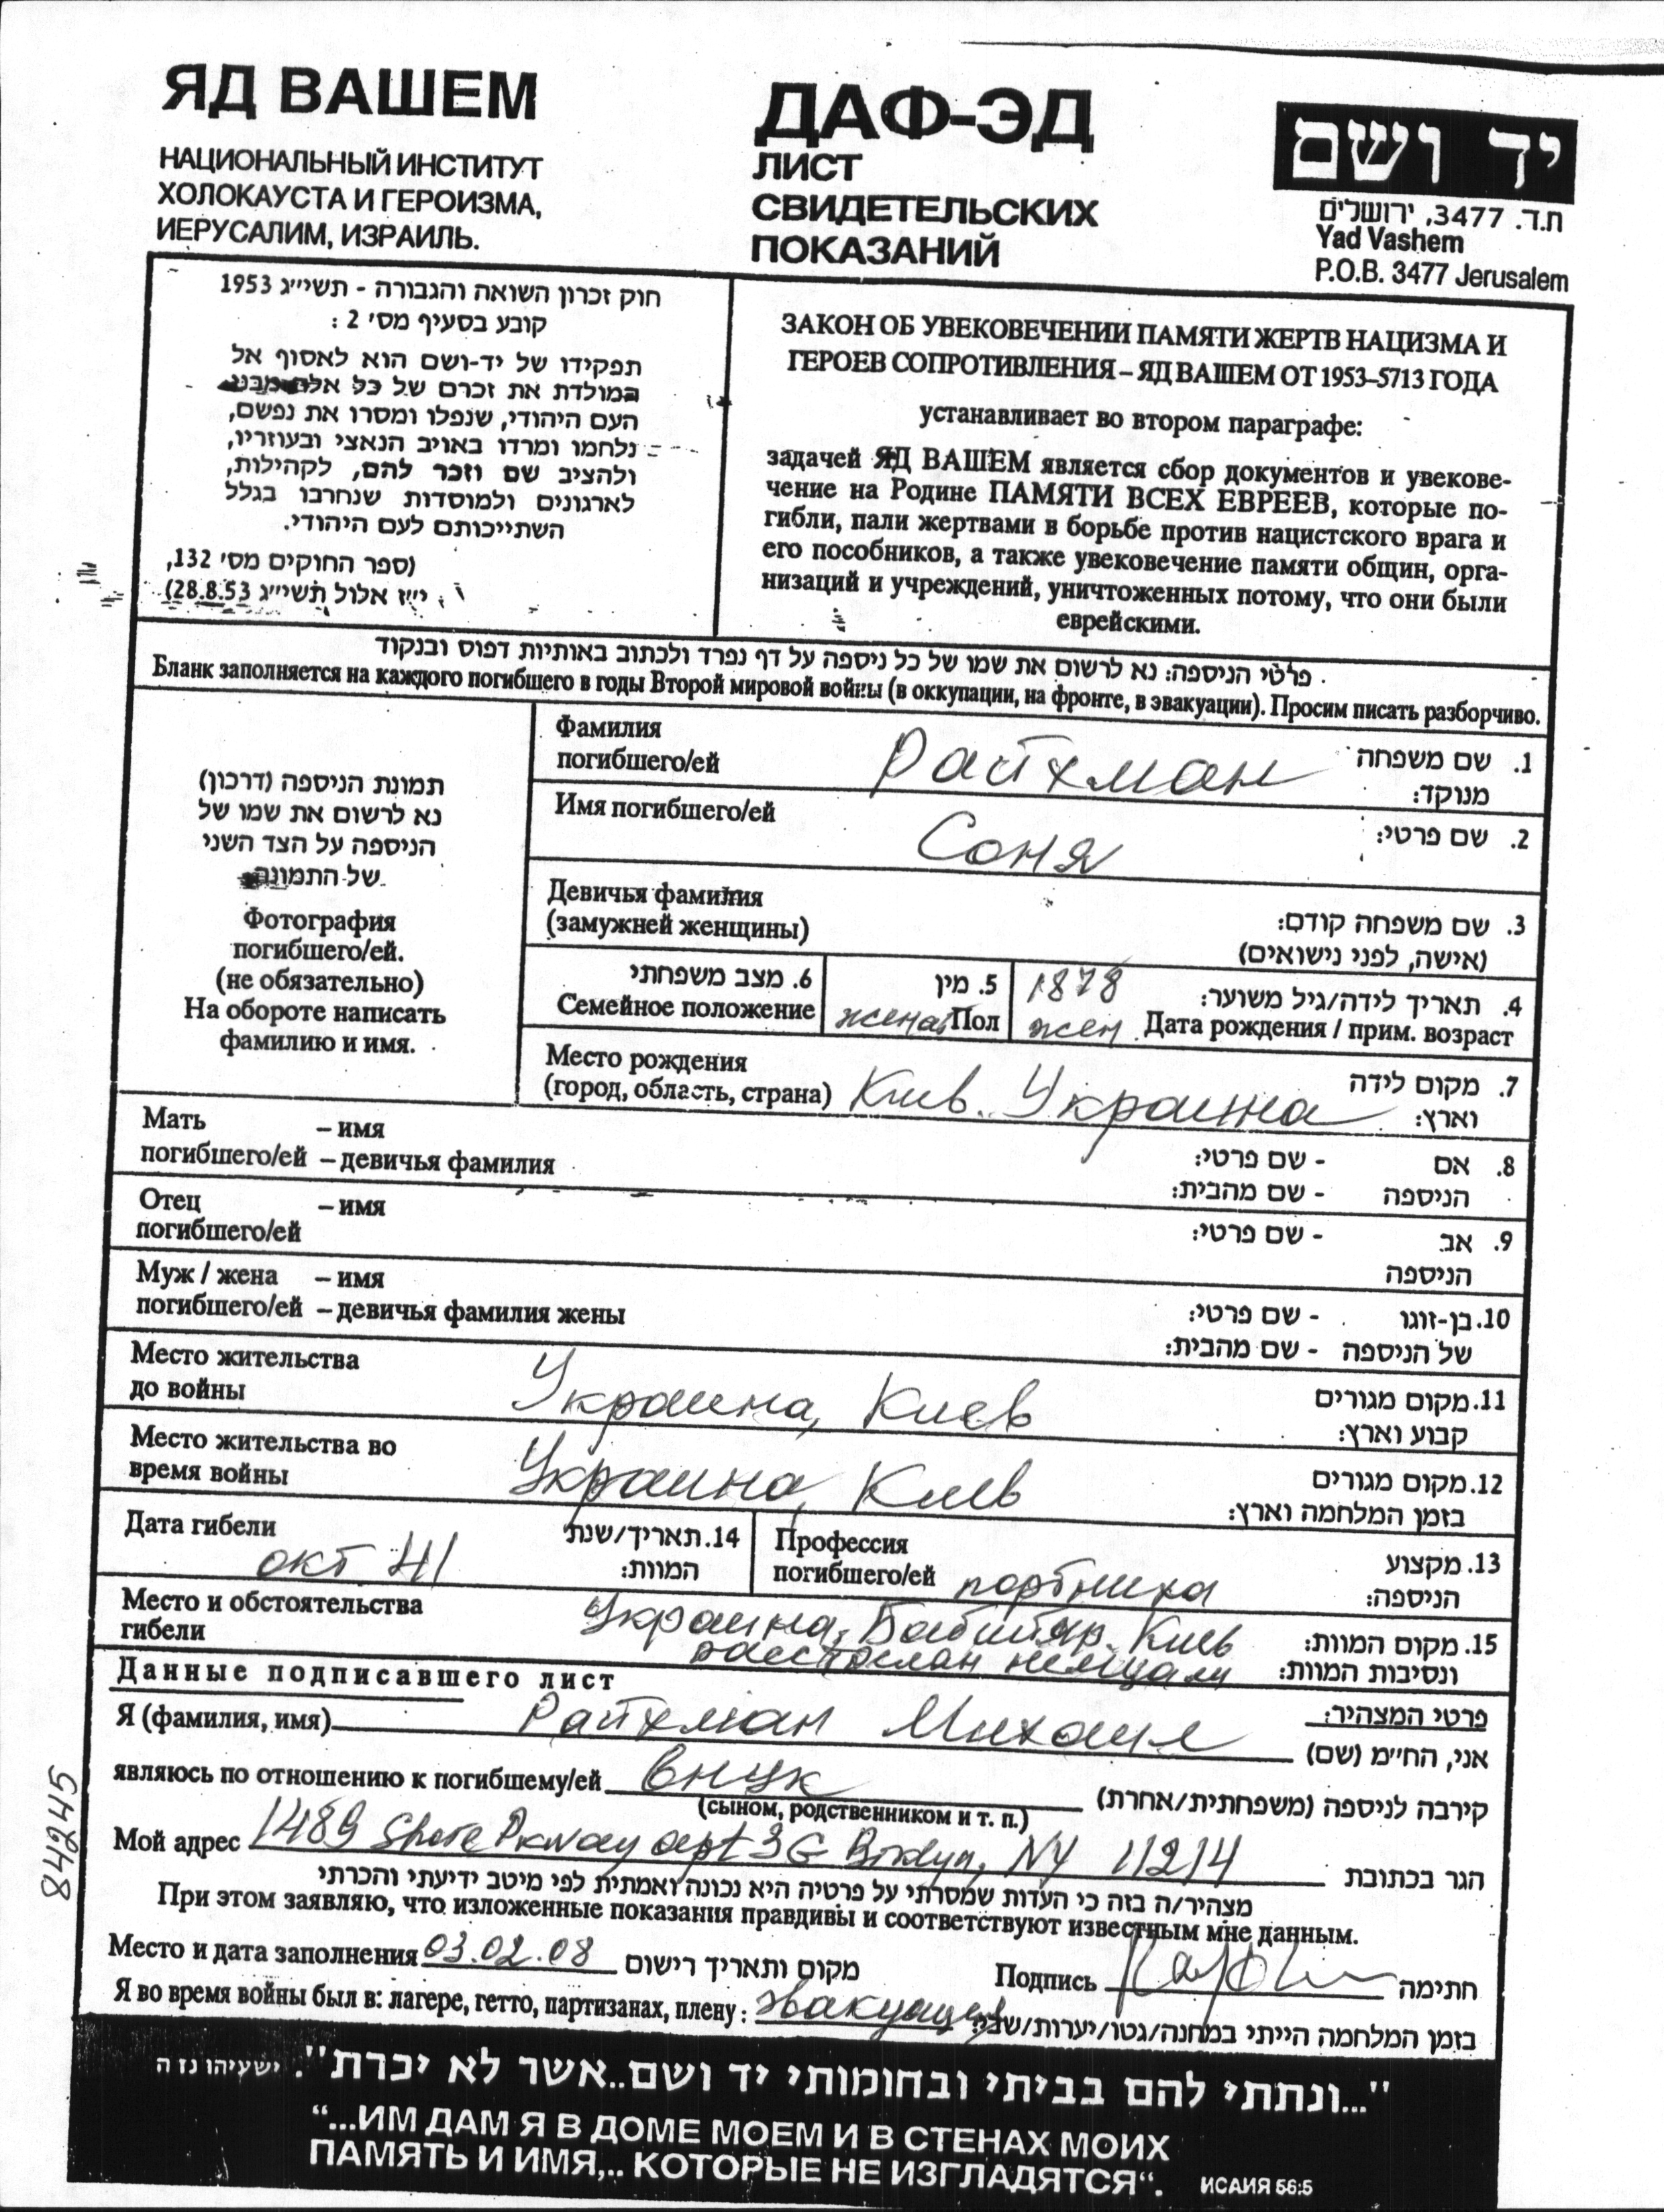 ЯД ВАШЕМ
НАЦИОНАЛЬНЫЙ ИНСТИТУТ
ХОЛОКАУСТА И ГЕРОИЗМА,
ИЕРУСАЛИМ, ИЗРАИЛЬ.
ДАФ-ЭД
ЛИСТ
СВИДЕТЕЛЬСКИХ
ПОКАЗАНИЙ
יד ושם
ת.ד. 3477, ירושלים
Yad Vashem
P.O.B. 3477 Jerusalem
חוק זכרון השואה והגבורה - תשי״ג 1953
קובע בסעיף מס׳ 2 :
תפקידו של יד-ושם הוא לאסוף אל
המולדת את זכרם של כל אלה מבני
העם היהודי, שנפלו ומסרו את נפשם,
נלחמו ומרדו באויב הנאצי ובעוזריו,
ולהציב שם וזכר להם, לקהילות,
לארגונים ולמוסדות שנחרבו בגלל
השתייכותם לעם היהודי.
(ספר החוקים מס׳ 132,
י״ז אלול תשי״ג 28.8.53)
ЗАКОН ОБ УВЕКОВЕЧЕНИИ ПАМЯТИ ЖЕРТВ НАЦИЗМА И
ГЕРОЕВ СОПРОТИВЛЕНИЯ – ЯД ВАШЕМ ОТ 1953–5713 ГОДА
устанавливает во втором параграфе:
задачей ЯД ВАШЕМ является сбор документов и увекове-
чение на Родине ПАМЯТИ ВСЕХ ЕВРЕЕВ, которые по-
гибли, пали жертвами в борьбе против нацистского врага и
его пособников, а также увековечение памяти общин, орга-
низаций и учреждений, уничтоженных потому, что они были
еврейскими.
פרטי הניספה: נא לרשום את שמו של כל ניספה על דף נפרד ולכתוב באותיות דפוס ובנקוד
Бланк заполняется на каждого погибшего в годы Второй мировой войны (в оккупации, на фронте, в эвакуации). Просим писать разборчиво.
תמונת הניספה (דרכון)
נא לרשום את שמו של
הניספה על הצד השני
של התמונה
Фотография
погибшего/ей.
(не обязательно)
На обороте написать
фамилию и имя.
Фамилия
погибшего/ей Райхман
1. שם משפחה
מנוקד:
Имя погибшего/ей Соня
2. שם פרטי:
Девичья фамилия
(замужней женщины)
3. שם משפחה קודם:
(אישה, לפני נישואים)
6. מצב משפחתי
Семейное положение
5. מין
жена Пол
1878 4. תאריך לידה/גיל משוער:
жен. Дата рождения / прим. возраст
Место рождения
(город, область, страна) Киев. Украина
7. מקום לידה
וארץ:
Мать – имя
погибшего/ей – девичья фамилия
8. אם - שם פרטי:
הניספה - שם מהבית:
Отец – имя
погибшего/ей
9. אב - שם פרטי:
הניספה
Муж / жена – имя
погибшего/ей – девичья фамилия жены
10. בן-זוגו - שם פרטי:
של הניספה - שם מהבית:
Место жительства
до войны Украина, Киев
11. מקום מגורים
קבוע וארץ:
Место жительства во
время войны Украина, Киев
12. מקום מגורים
בזמן המלחמה וארץ:
Дата гибели
окт 41
14. תאריך/שנת
המוות:
Профессия
погибшего/ей портниха
13. מקצוע
הניספה:
Место и обстоятельства
гибели
Украина, Бабий яр. Киев
немцами
15. מקום המוות:
ונסיבות המוות:
Данные подписавшего лист
פרטי המצהיר:
Я (фамилия, имя) Райхман Михаил אני, החי״מ (שם)
являюсь по отношению к погибшему/ей внук קירבה לניספה (משפחתית/אחרת)
(сыном, родственником и т. п.)
Мой адрес 1489 Shore Pkway apt 3G Brklyn, NY 11214 הגר בכתובת
מצהיר/ה בזה כי העדות שמסרתי על פרטיה היא נכונה ואמתית לפי מיטב ידיעתי והכרתי
При этом заявляю, что изложенные показания правдивы и соответствуют известным мне данным.
Место и дата заполнения 03.02.08 מקום ותאריך רישום Подпись חתימה
Я во время войны был в: лагере, гетто, партизанах, плену: эвакуации בזמן המלחמה הייתי במחנה/גטו/יערות/שבי:
842245
"...ונתתי להם בביתי ובחומותי יד ושם..אשר לא יכרת". ישעיהו נז ה
“...ИМ ДАМ Я В ДОМЕ МОЕМ И В СТЕНАХ МОИХ
ПАМЯТЬ И ИМЯ,.. КОТОРЫЕ НЕ ИЗГЛАДЯТСЯ“. ИСАИЯ 56:5